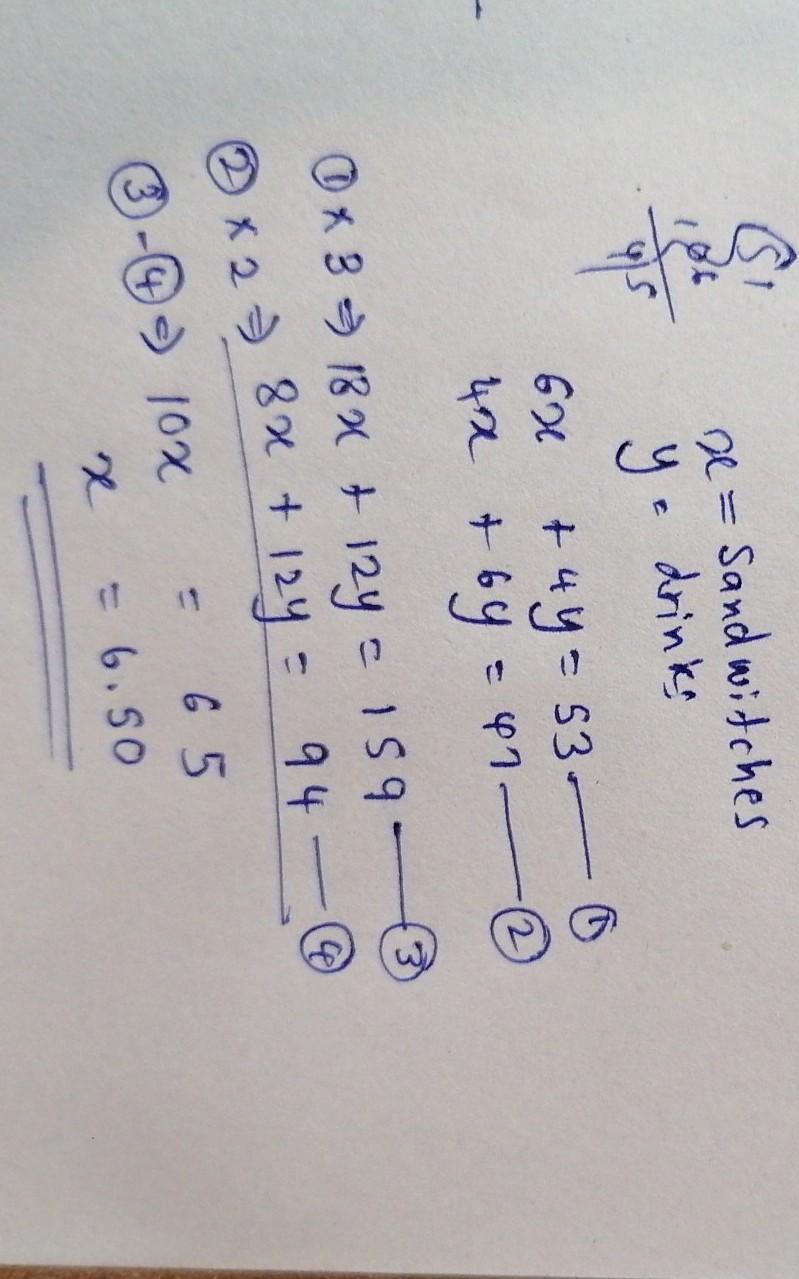 x = Sandwitches
y = drinks
6x + 4y = 53 — ①
4x + 6y = 47 — ②
① × 3 ⇒ 18x + 12y = 159 — ③
② × 2 ⇒ 8x + 12y = 94 — ④
③ - ④ ⇒ 10x = 65
x = 6.50